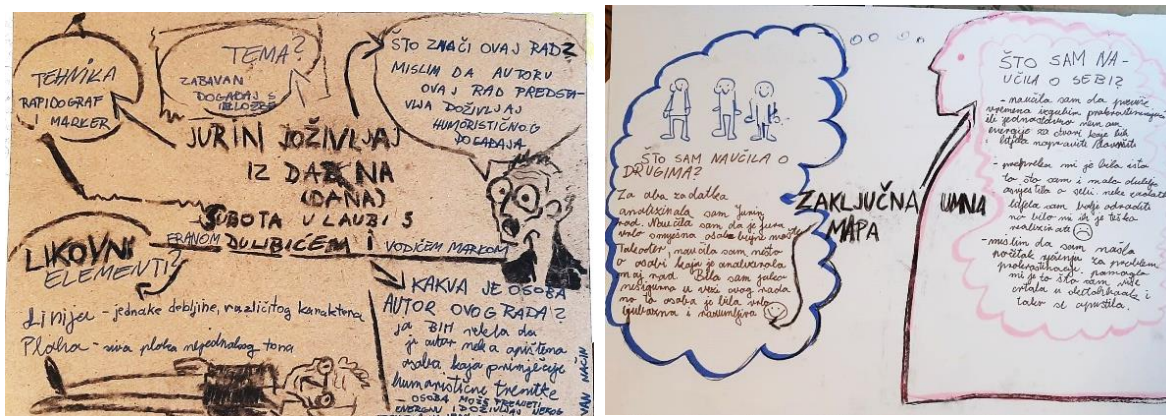 TEHNIKA
RAPIDOGRAF
I MARKER
TEMA?
ZABAVAN
DOGAĐAJ S
IZLOŽBE
ŠTO ZNAČI OVAJ RAD?
MISLIM DA AUTORU
OVAJ RAD PREDSTA-
VLJA DOŽIVLJAJ
HUMORISTIČNOG
DOGAĐAJA
JURIN DOŽIVLJAJ
IZ
(DANA)
SUBOTA U LAUBI S
FRANOM DULIBIĆEM I VODIČEM MARKOM
LIKOVNI
ELEMENTI?
Linija - jednake debljine, različitog karaktera
Ploha - siva ploha nejednakog tona
KAKVA JE OSOBA
AUTOR OVOG RADA?
ja BIH rekla da
je autor neka opuštena
osoba koja primjećuje
humoristične trenutke
- OSOBA MOŽE PRENETI
ENERGIJU I DOŽIVLJAJ NEKOG
NAČIN
ŠTO SAM NAUČILA O
DRUGIMA?
Za oba zadatka
analizirala sam Jurin
rad. Naučila sam da je Jura
vrlo smiješna osoba
Također, naučila sam nešto
o osobi koja je analizirala
moj rad. Bila sam jako
nesigurna u vezi ovog rada
no ta osoba je bila vrlo
ljubazna i
ZAKLJUČNA UMNA
MAPA
ŠTO SAM NA-
UČILA O SEBI?
- naučila sam da previše
vremena izgubim
ili jednostavno nemam
energije za stvari koje bih
htjela napraviti
- prepreka mi je bila isto
to što sam i malo dublje
o sebi. neke zadatke
htjela sam bolje odraditi
no bilo mi ih je teško
realizirati
- mislim da sam našla
početak rješenja za problem
prokrastinacije. pomoglo
mi je to što sam više
crtala u
tako se opustila.